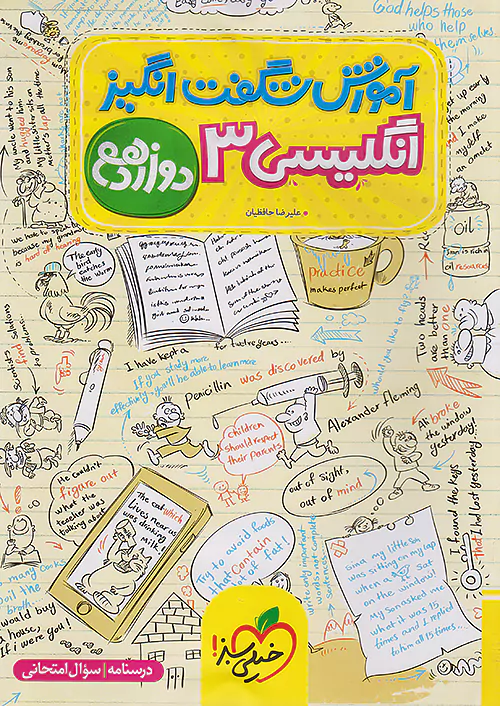 God helps those
who help
themselves
آموزش شگفت انگیز
انگلیسی ۳
دوازدهم
علیرضا حافظیان
my uncle went to his son
and hugged him.
my little sister sits on
mother's lap all the time
up early
the morning
and I make
myself
an omelet
because my grandma
is hard of hearing
Oil
Iran is rich in
oil resources
The early
bird
catches
the worm
Practice
makes perfect
Two heads
are better
than one
I have kept a
for twelve years...
If you study more
effectively, you'll be able to learn more
Scientists
find solutions
to problems...
Penicillin was discovered by
Alexander Fleming
children
should respect
their parents
Ali broke
the window
yesterday.
He couldn't
figure out
what the
teacher was
talking about.
out of sight,
out of mind
I found the keys
That I had lost yesterday.
The cat which
Lives near us
was drinking
milk!
Try to avoid foods
that contain
lots of fat!
Write only important
words, not complete
sentences
Gina, my little son
was sitting on my lap
when a
sat
on the window!
My son asked me
what it was 15
times and I replied
to him all 15 times...
many Cooks
spoil the
broth
I would buy
a house,
if i were you!
خیلی سبز!
درسنامه | سؤال امتحانی